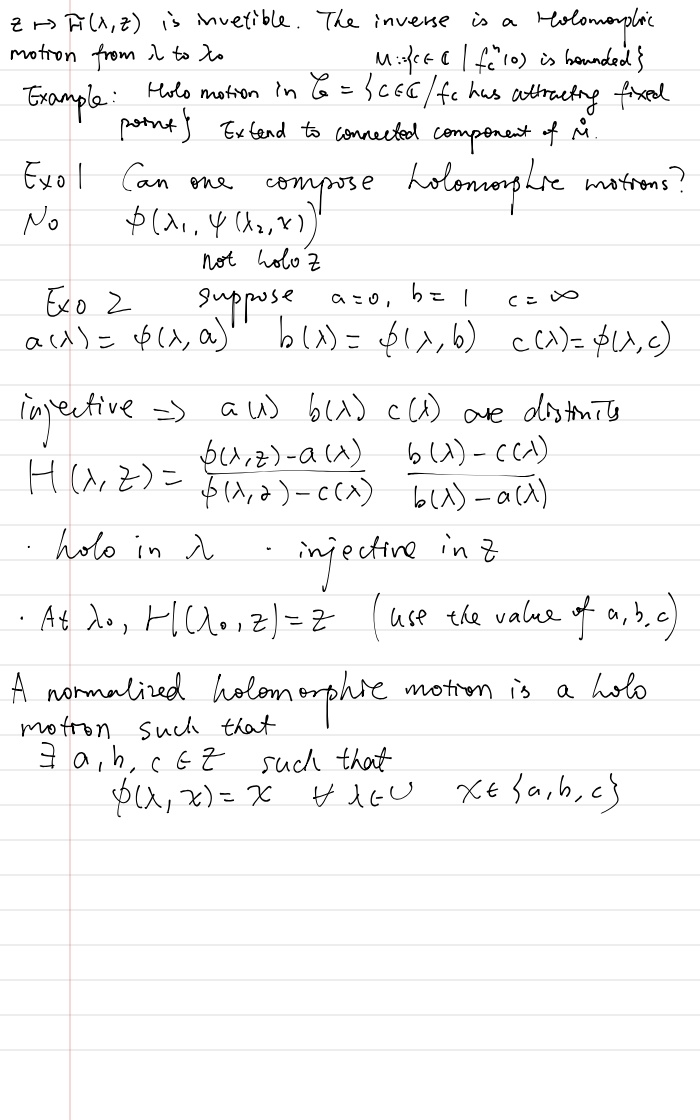 z ↦ H̃(λ,z) is invetible. The inverse is a Holomorphic
motion from λ to λ₀ M := {c ∈ ℂ | f_c^n(0) is bounded}
Example: Holo motion in 𝒞 = {c ∈ ℂ / f_c has attracting fixed
point} Extend to connected component of M̊.
Exo 1 Can one compose holomorphic motions?
No ϕ(λ₁, ψ(λ₂, x))
not holo z
Exo 2 suppose a=0, b=1 c=∞
a(λ) = ϕ(λ, a) b(λ) = ϕ(λ, b) c(λ) = ϕ(λ, c)
injective ⇒ a(λ) b(λ) c(λ) are distints
H(λ, z) = (ϕ(λ,z) - a(λ))/(ϕ(λ,z) - c(λ)) (b(λ) - c(λ))/(b(λ) - a(λ))
· holo in λ · injective in z
· At λ₀, H(λ₀, z) = z (use the value of a, b, c)
A normalized holomorphic motion is a holo
motion such that
∃ a, b, c ∈ Z such that
ϕ(λ, x) = x ∀ λ ∈ U x ∈ {a, b, c}